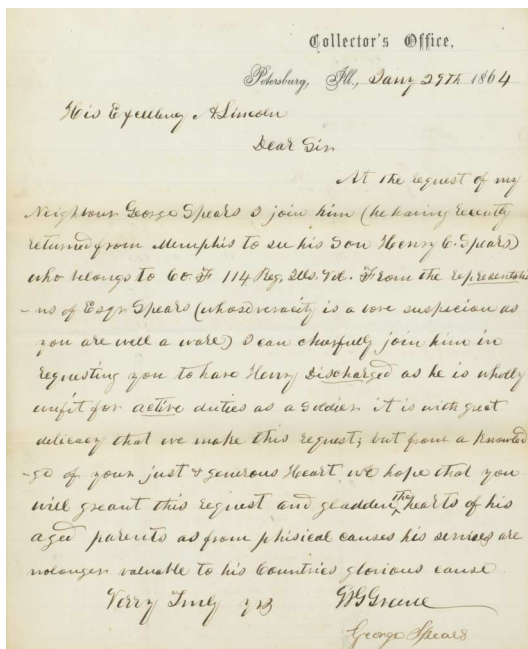 Collector's Office,
Petersburg, Ill., Jany 29th 1864
His Exellency A Lincoln
Dear Sir
At the request of my
Neighbour George Spears I join him (he having recently
returned from Memphis to see his Son Henry C. Spears)
who belongs to Co. F 114 Reg. Ills. Vol. From the representatio
-ns of Esqr Spears (whose veracity is a bove suspicion as
you are well a ware) I can chearfully join him in
requesting you to have Henry Discharged as he is wholly
unfit for active duties as a Soldier it is with great
delicacy that we make this request; but from a knowled
-ge of your just & generous Heart we hope that you
will greant this request and gladden the hearts of his
aged parents as from phisical causes his services are
nolonger valuable to his Countries glorious cause
Verry Truly yrs WG Greene
George Spears